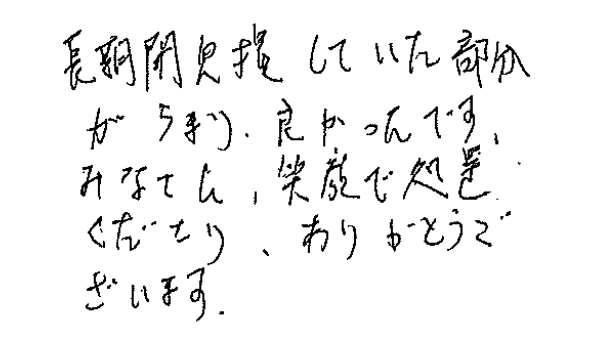 長期間欠損していた部分
がうまり、良かったんです、
みなさん、笑顔で処置
くださり、ありがとうご
ざいます。